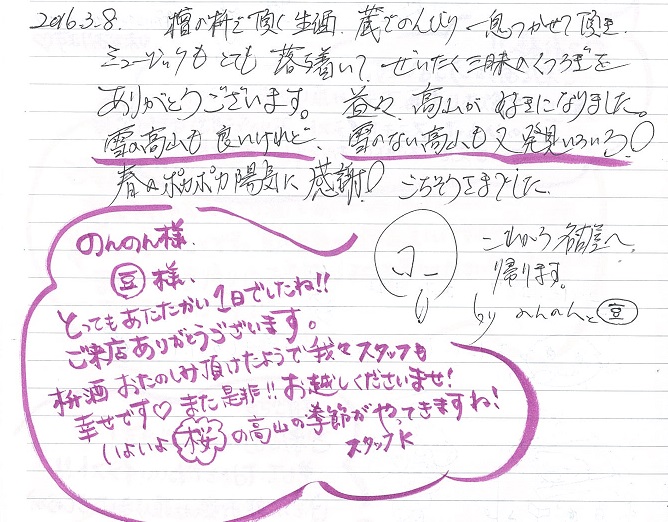 2016.3.8. 檜の枡で頂く生酒、蔵でのんびり一息つかせて頂き
ミュージックもとても落ち着いて、ぜいたく三昧のくつろぎを
ありがとうございます。益々、高山が好きになりました。
雪の高山も良いけれど、雪のない高山も又発見いろいろ!
春のポカポカ陽気に感謝! ごちそうさまでした。
これから名古屋へ
帰ります。
by のんのんと豆
のんのん様、
豆様、
とってもあたたかい1日でしたね!!
ご来店ありがとうございます。
枡酒おたのしみ頂けたようで我々スタッフも
幸せです♡ また是非!!お越しくださいませ!
いよいよ桜の高山の季節がやってきますね!
スタッフK